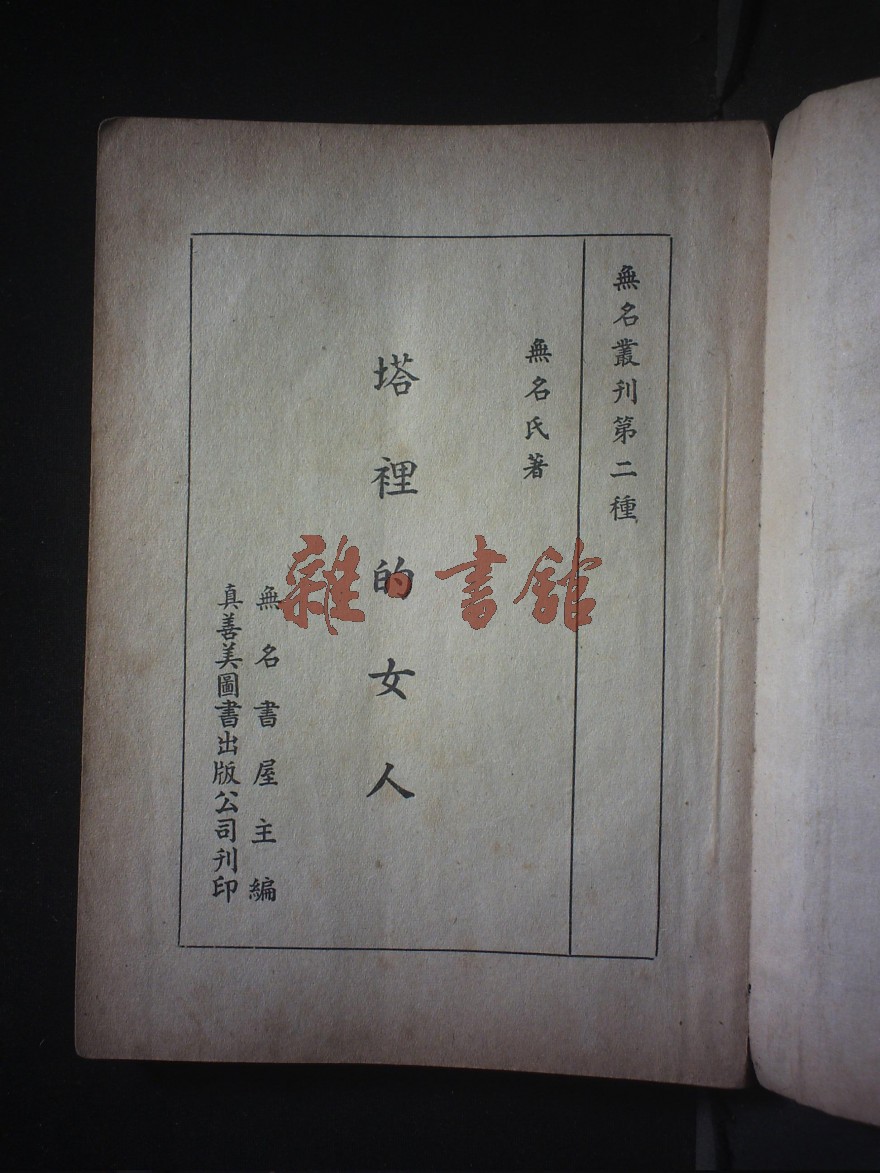 無名叢刊第二種
無名氏著
塔裡的女人
無名書屋主編
真善美圖書出版公司刊印
雜·書館